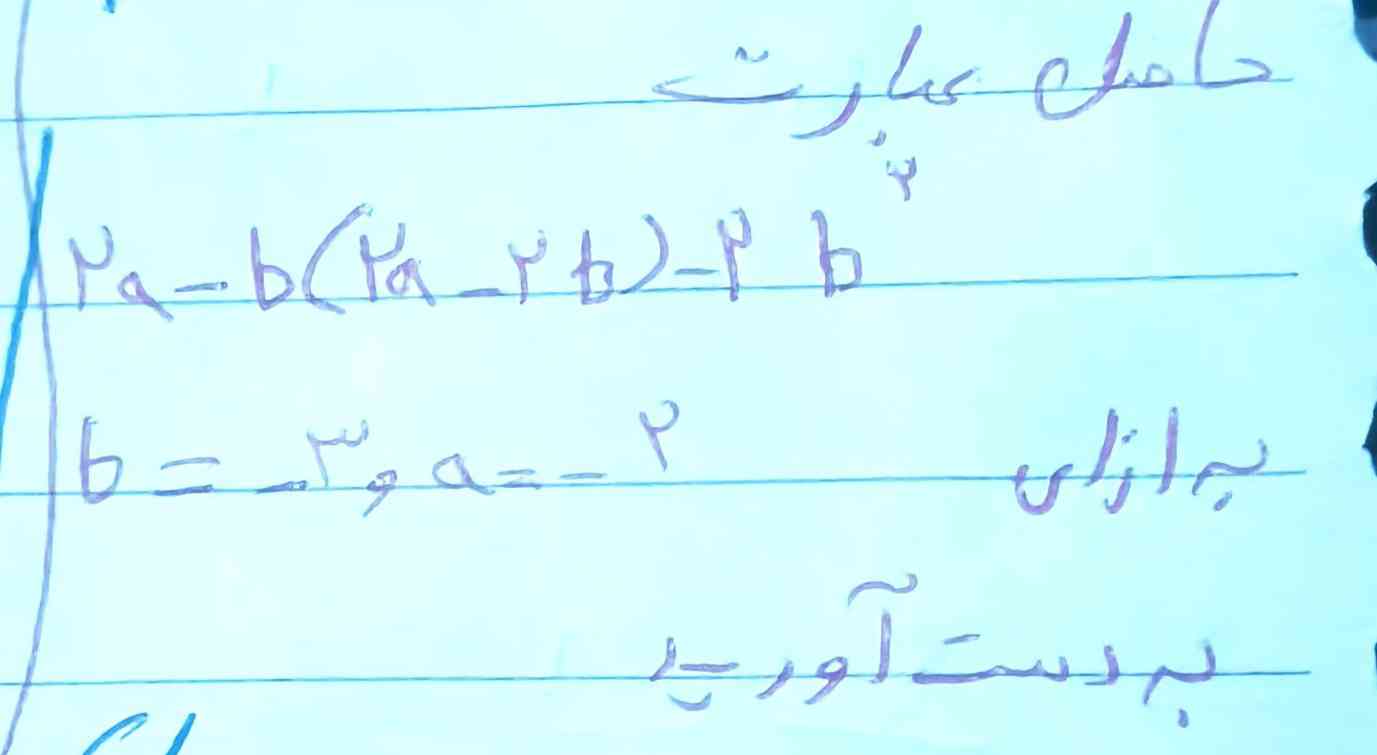 حاصل عبارت
۲a - b(۲a - ۲b) - ۲b^۲
به ازای b = -۳ و a = -۲
به دست آورید